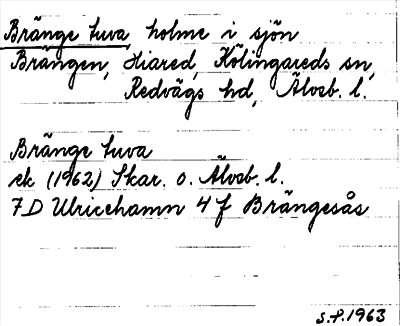 Bränge tuva, holme i sjön
Brängen, Hiared, Kölingareds sn,
Redvägs hd, Älvsb. l.
Bränge tuva
ek (1962) Skar. o. Älvsb. l.
7D Ulricehamn 4 f Brängesås
S.F. 1963